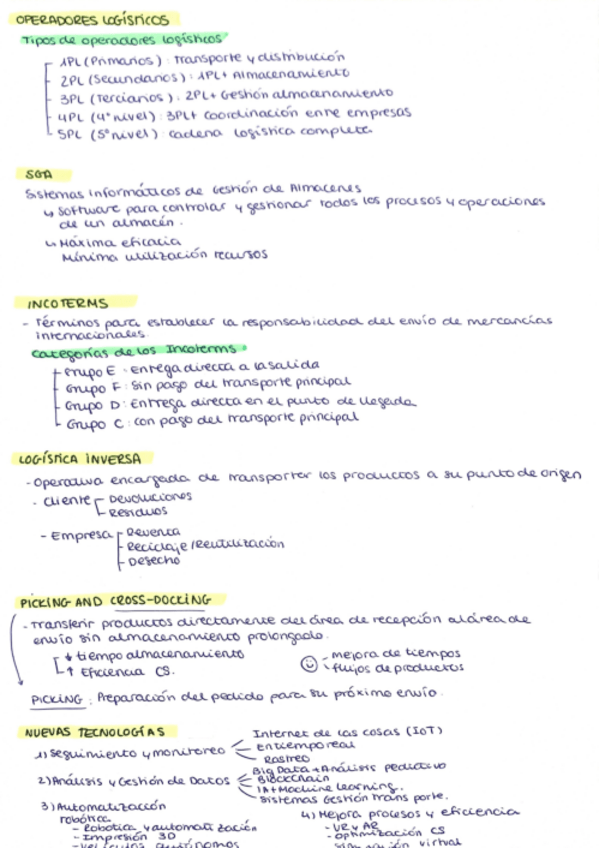 OPERADORES LOGÍSTICOS
Tipos de operadores logísticos
1PL (Primarios): Transporte y distribución
2PL (Secundarios): 1PL + Almacenamiento
3PL (Terciarios): 2PL + Gestión almacenamiento
4PL (4º nivel): 3PL + Coordinación entre empresas
5PL (5º nivel): cadena logística completa
SGA
Sistemas informáticos de Gestión de Almacenes
↳ Software para controlar y gestionar todos los procesos y operaciones
de un almacén.
↳ Máxima eficacia
Mínima utilización recursos
INCOTERMS
- Términos para establecer la responsabilidad del envío de mercancías
internacionales.
Categorías de los Incoterms:
Grupo E: entrega directa a la salida
Grupo F: Sin pago del transporte principal
Grupo D: Entrega directa en el punto de llegada
Grupo C: con pago del transporte principal
LOGÍSTICA INVERSA
- Operativa encargada de transportar los productos a su punto de origen
- Cliente Devoluciones
Residuos
- Empresa Reventa
Reciclaje/Reutilización
Desecho
PICKING AND CROSS-DOCKING
- Transferir productos directamente del área de recepción al área de
envío sin almacenamiento prolongado.
↓ tiempo almacenamiento
↑ Eficiencia CS.
- mejora de tiempos
- flujos de productos
PICKING: Preparación del pedido para su próximo envío.
NUEVAS TECNOLOGÍAS
1) Seguimiento y monitoreo
Internet de las cosas (IoT)
En tiempo real
Rastreo
2) Análisis y Gestión de Datos
Big Data + Análisis predictivo
Blockchain
IA + Machine Learning.
Sistemas Gestión transporte.
3) Automatización
robótica.
- Robótica y automatización
- Impresión 3D
- Vehículos autónomos
4) Mejora procesos y eficiencia
- VR y AR
- Optimización CS
simulación virtual